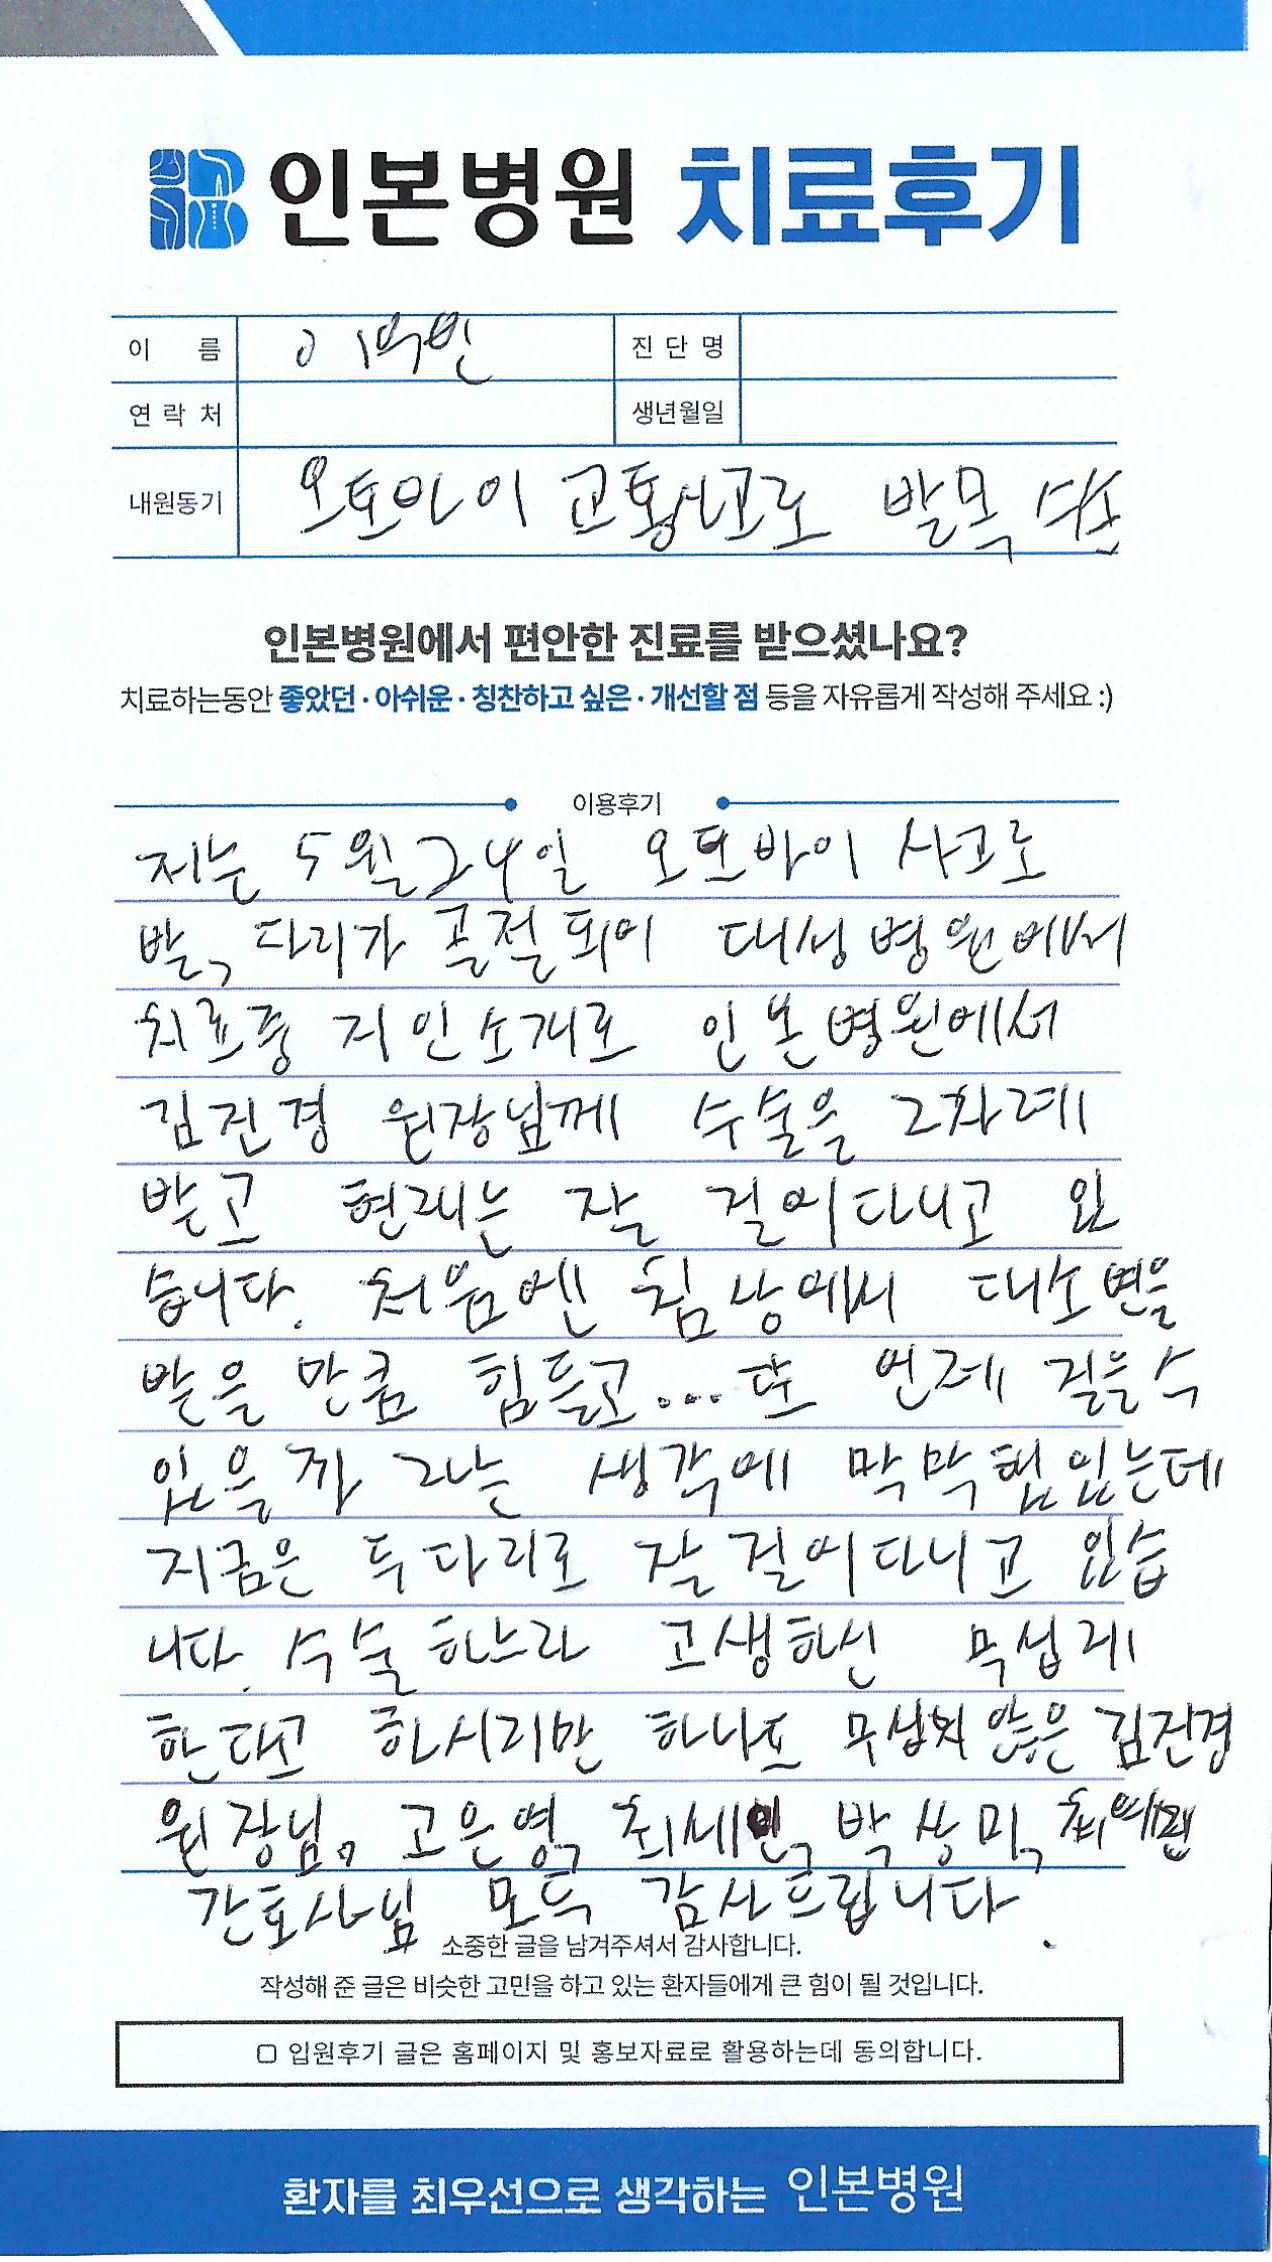 인본병원 치료후기
이 름 진 단 명
연 락 처 생년월일
내원동기 오토바이 교통사고로 발목 수술
인본병원에서 편안한 진료를 받으셨나요?
치료하는동안 좋았던 · 아쉬운 · 칭찬하고 싶은 · 개선할 점 등을 자유롭게 작성해 주세요 :)
이용후기
저는 5월24일 오토바이 사고로
발, 다리가 골절되어 대성병원에서
치료중 지인소개로 인본병원에서
김진경 원장님께 수술을 2차례
받고 현재는 잘 걸어다니고 있
습니다. 처음엔 침상에서 대소변을
받을 만큼 힘들고... 또 언제 걸을수
있을까 라는 생각에 막막했었는데
지금은 두다리로 잘 걸어다니고 있습
니다. 수술하느라 고생하신 무섭게
한다고 하시지만 하나도 무섭지 않은 김진경
원장님, 고은영, 최세인, 박상미, 최예민
간호사님 모두 감사드립니다.
소중한 글을 남겨주셔서 감사합니다.
작성해 준 글은 비슷한 고민을 하고 있는 환자들에게 큰 힘이 될 것입니다.
□ 입원후기 글은 홈페이지 및 홍보자료로 활용하는데 동의합니다.
환자를 최우선으로 생각하는 인본병원